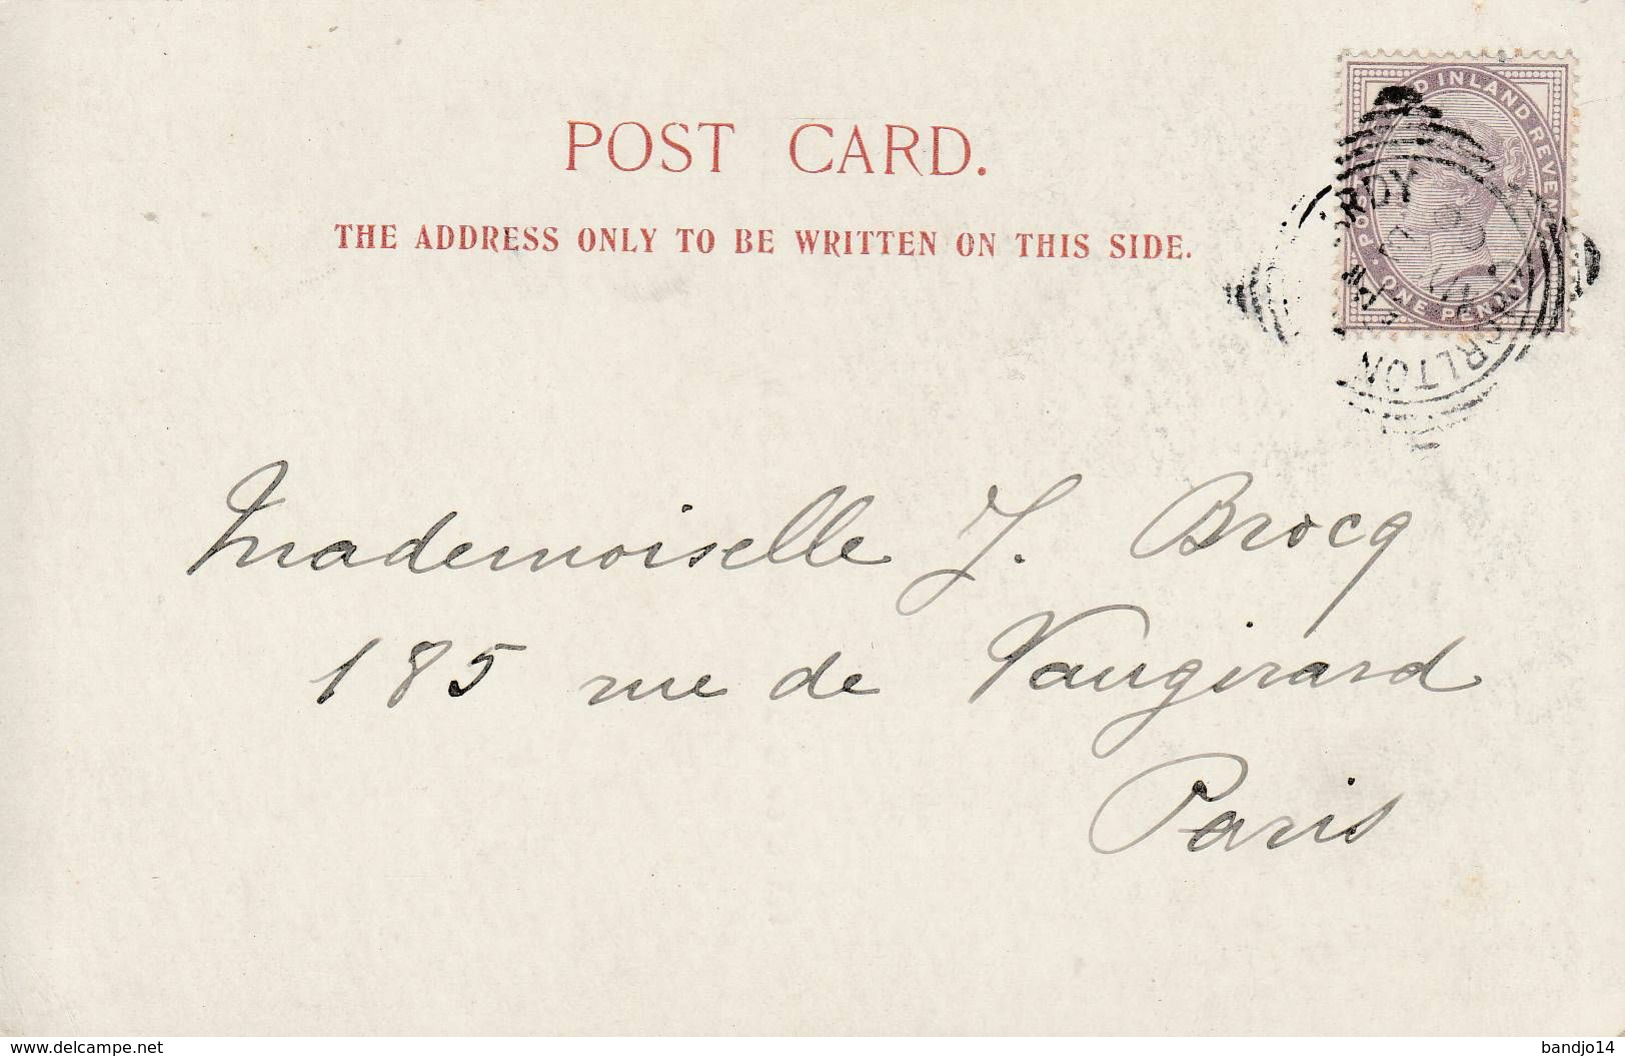 POST CARD.
THE ADDRESS ONLY TO BE WRITTEN ON THIS SIDE.
INLAND REVE
ONE PENNY
Mademoiselle J. Brocq
185 rue de Vaugirard
Paris
www.delcampe.net
bandjo14